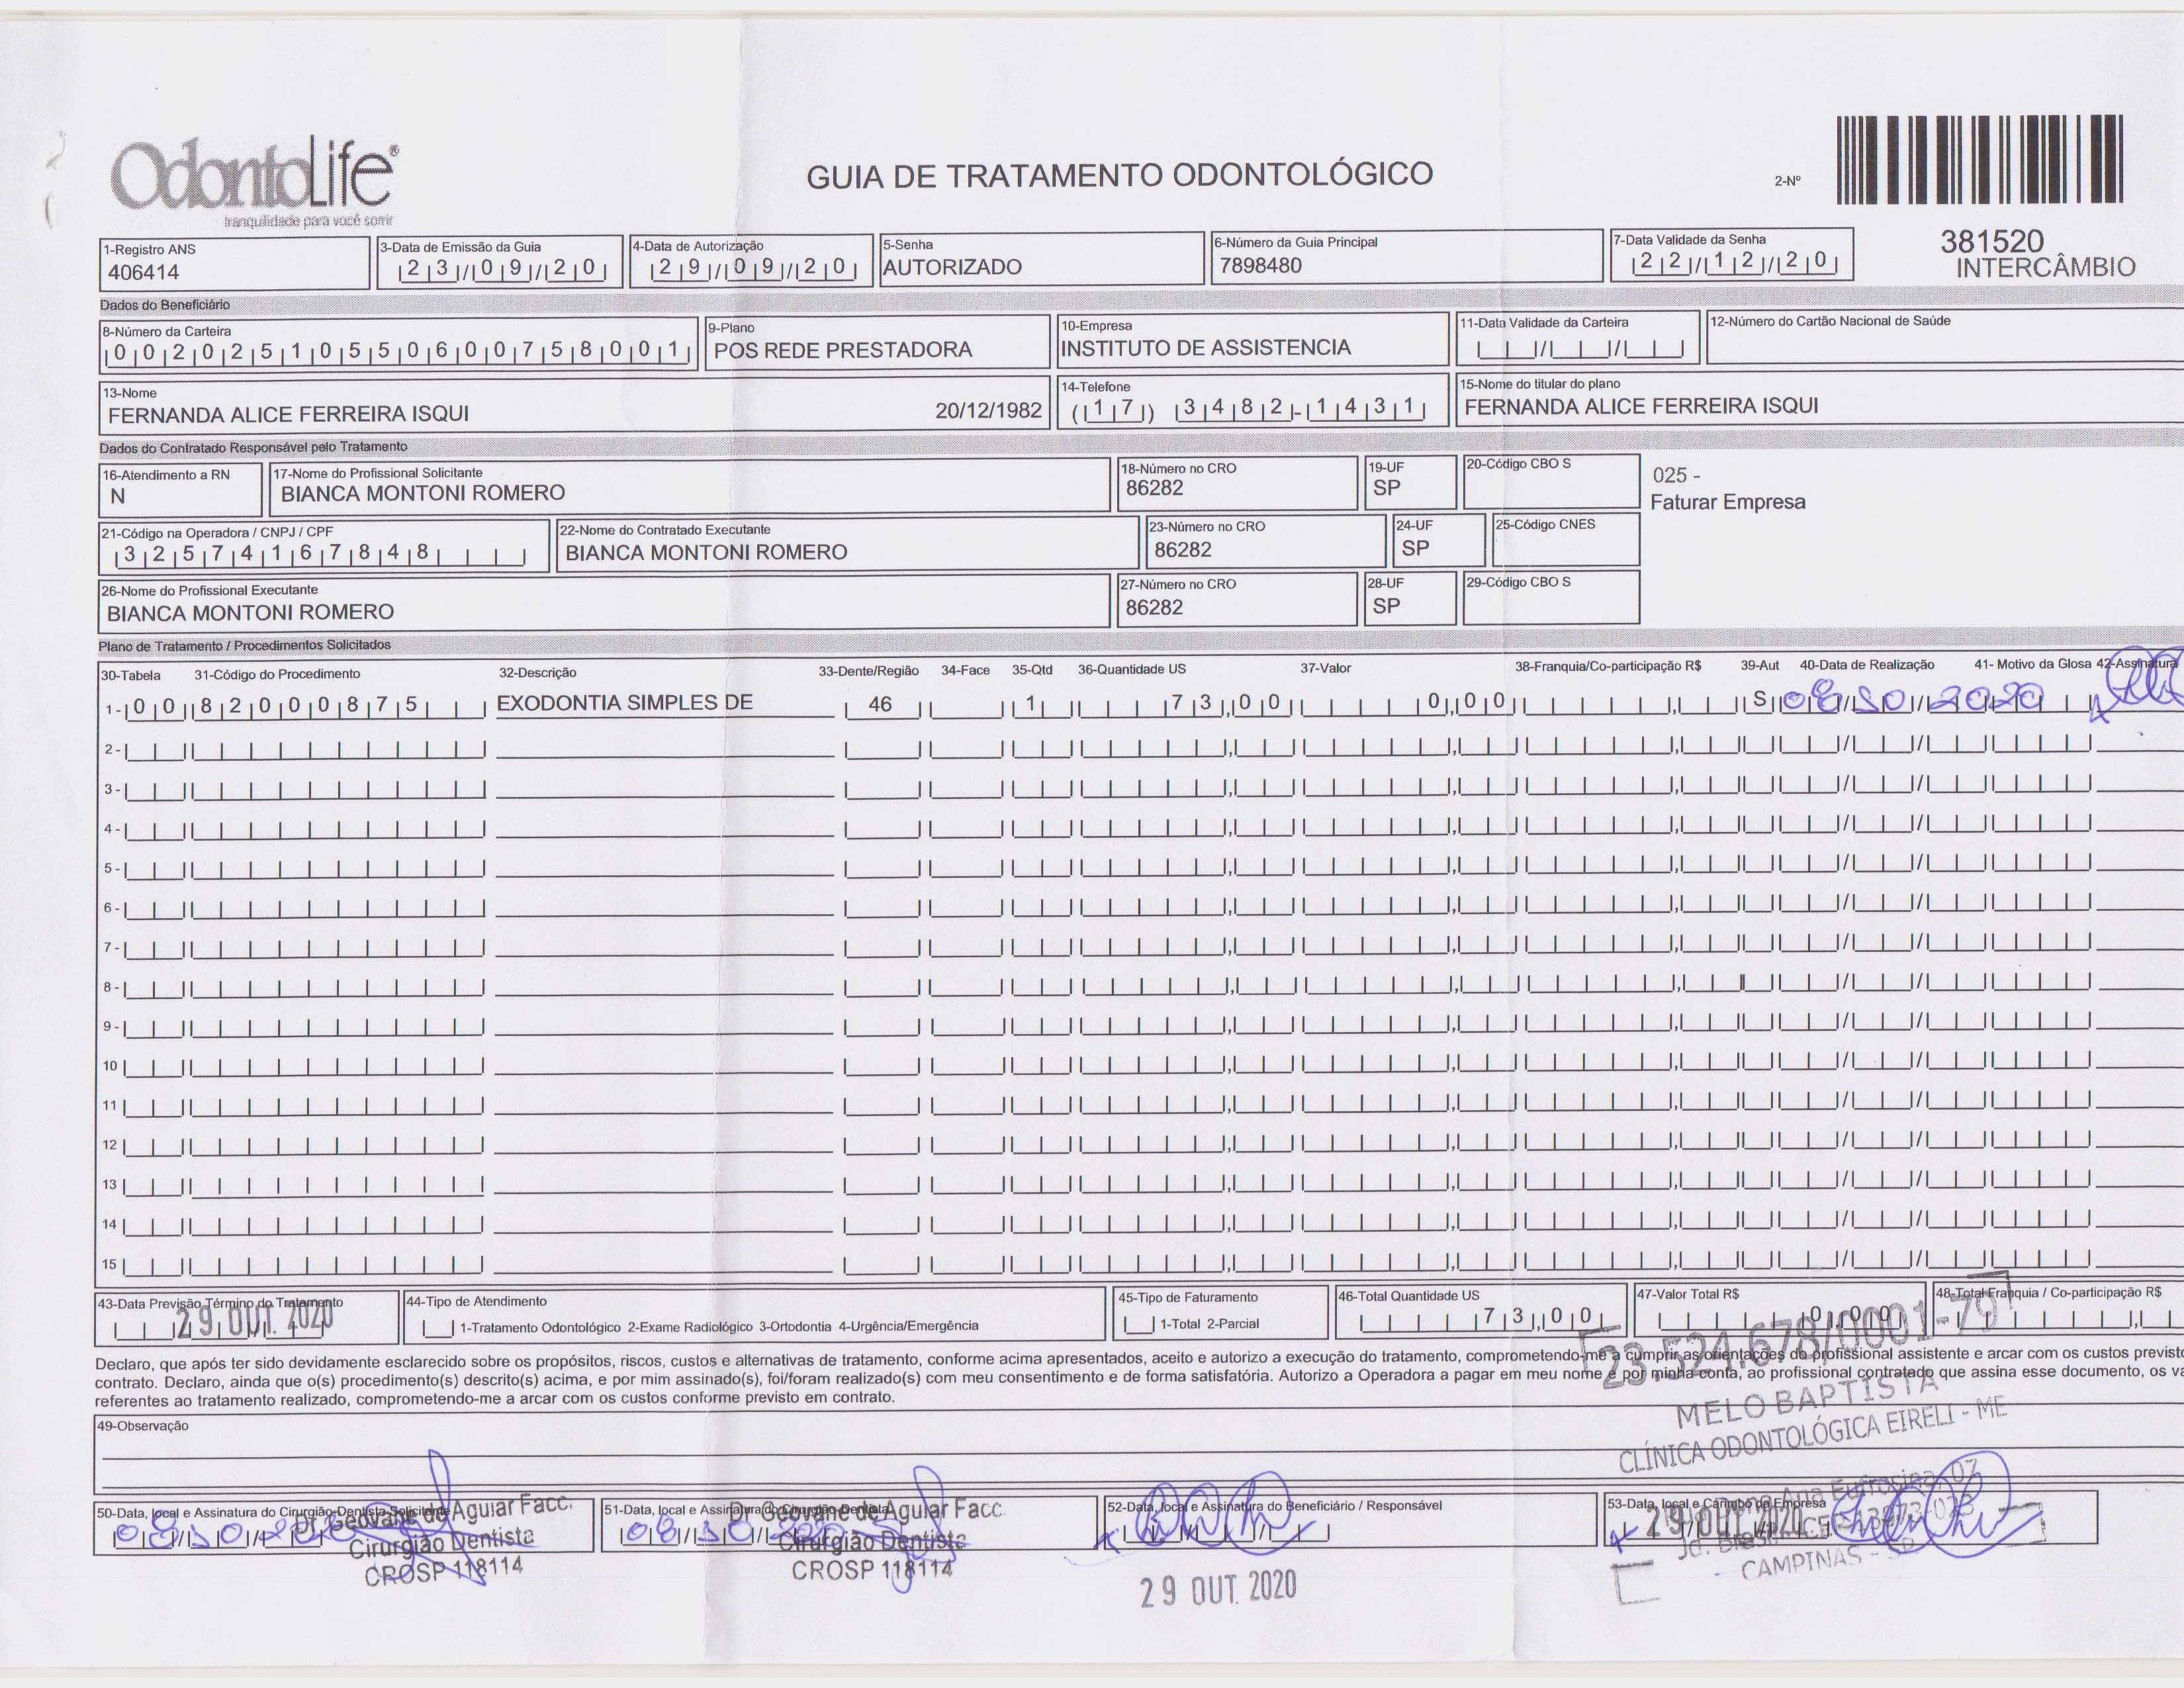 OdontoLife®
tranquilidade para você sorrir
GUIA DE TRATAMENTO ODONTOLÓGICO
2-Nº
381520
INTERCÂMBIO
1-Registro ANS
406414
3-Data de Emissão da Guia
23/09/20
4-Data de Autorização
29/09/20
5-Senha
AUTORIZADO
6-Número da Guia Principal
7898480
7-Data Validade da Senha
22/12/20
Dados do Beneficiário
8-Número da Carteira
00202510550600758001
9-Plano
POS REDE PRESTADORA
10-Empresa
INSTITUTO DE ASSISTENCIA
11-Data Validade da Carteira
12-Número do Cartão Nacional de Saúde
13-Nome
FERNANDA ALICE FERREIRA ISQUI 20/12/1982
14-Telefone
(17) 3482-1431
15-Nome do titular do plano
FERNANDA ALICE FERREIRA ISQUI
Dados do Contratado Responsável pelo Tratamento
16-Atendimento a RN
N
17-Nome do Profissional Solicitante
BIANCA MONTONI ROMERO
18-Número no CRO
86282
19-UF
SP
20-Código CBO S
025 -
Faturar Empresa
21-Código na Operadora / CNPJ / CPF
32574167848
22-Nome do Contratado Executante
BIANCA MONTONI ROMERO
23-Número no CRO
86282
24-UF
SP
25-Código CNES
26-Nome do Profissional Executante
BIANCA MONTONI ROMERO
27-Número no CRO
86282
28-UF
SP
29-Código CBO S
Plano de Tratamento / Procedimentos Solicitados
30-Tabela 31-Código do Procedimento 32-Descrição 33-Dente/Região 34-Face 35-Qtd 36-Quantidade US 37-Valor 38-Franquia/Co-participação R$ 39-Aut 40-Data de Realização 41- Motivo da Glosa 42-Assinatura
1- 00 82000875 EXODONTIA SIMPLES DE 46 1 73,00 0,00 S 08/10/2020
2-
3-
4-
5-
6-
7-
8-
9-
10
11
12
13
14
15
43-Data Previsão Término do Tratamento
29 OUT. 2020
44-Tipo de Atendimento
1-Tratamento Odontológico 2-Exame Radiológico 3-Ortodontia 4-Urgência/Emergência
45-Tipo de Faturamento
1-Total 2-Parcial
46-Total Quantidade US
73,00
47-Valor Total R$
0,00
48-Total Franquia / Co-participação R$
Declaro, que após ter sido devidamente esclarecido sobre os propósitos, riscos, custos e alternativas de tratamento, conforme acima apresentados, aceito e autorizo a execução do tratamento, comprometendo-me a cumprir as orientações do profissional assistente e arcar com os custos previsto
contrato. Declaro, ainda que o(s) procedimento(s) descrito(s) acima, e por mim assinado(s), foi/foram realizado(s) com meu consentimento e de forma satisfatória. Autorizo a Operadora a pagar em meu nome e por minha conta, ao profissional contratado que assina esse documento, os va
referentes ao tratamento realizado, comprometendo-me a arcar com os custos conforme previsto em contrato.
23.524.678/0001-79
MELO BAPTISTA
CLÍNICA ODONTOLÓGICA EIRELI - ME
49-Observação
50-Data, local e Assinatura do Cirurgião-Dentista Solicitante
08/10/2020
Dr Geovane de Aguiar Facc.
Cirurgião Dentista
CROSP 118114
51-Data, local e Assinatura do Cirurgião-Dentista
08/10/2020
Dr Geovane de Aguiar Facc.
Cirurgião Dentista
CROSP 118114
52-Data, local e Assinatura do Beneficiário / Responsável
29 OUT. 2020
53-Data, local e Carimbo da Empresa
29 OUT. 2020
Ana Eufrosina, 07
CAMPINAS - SP